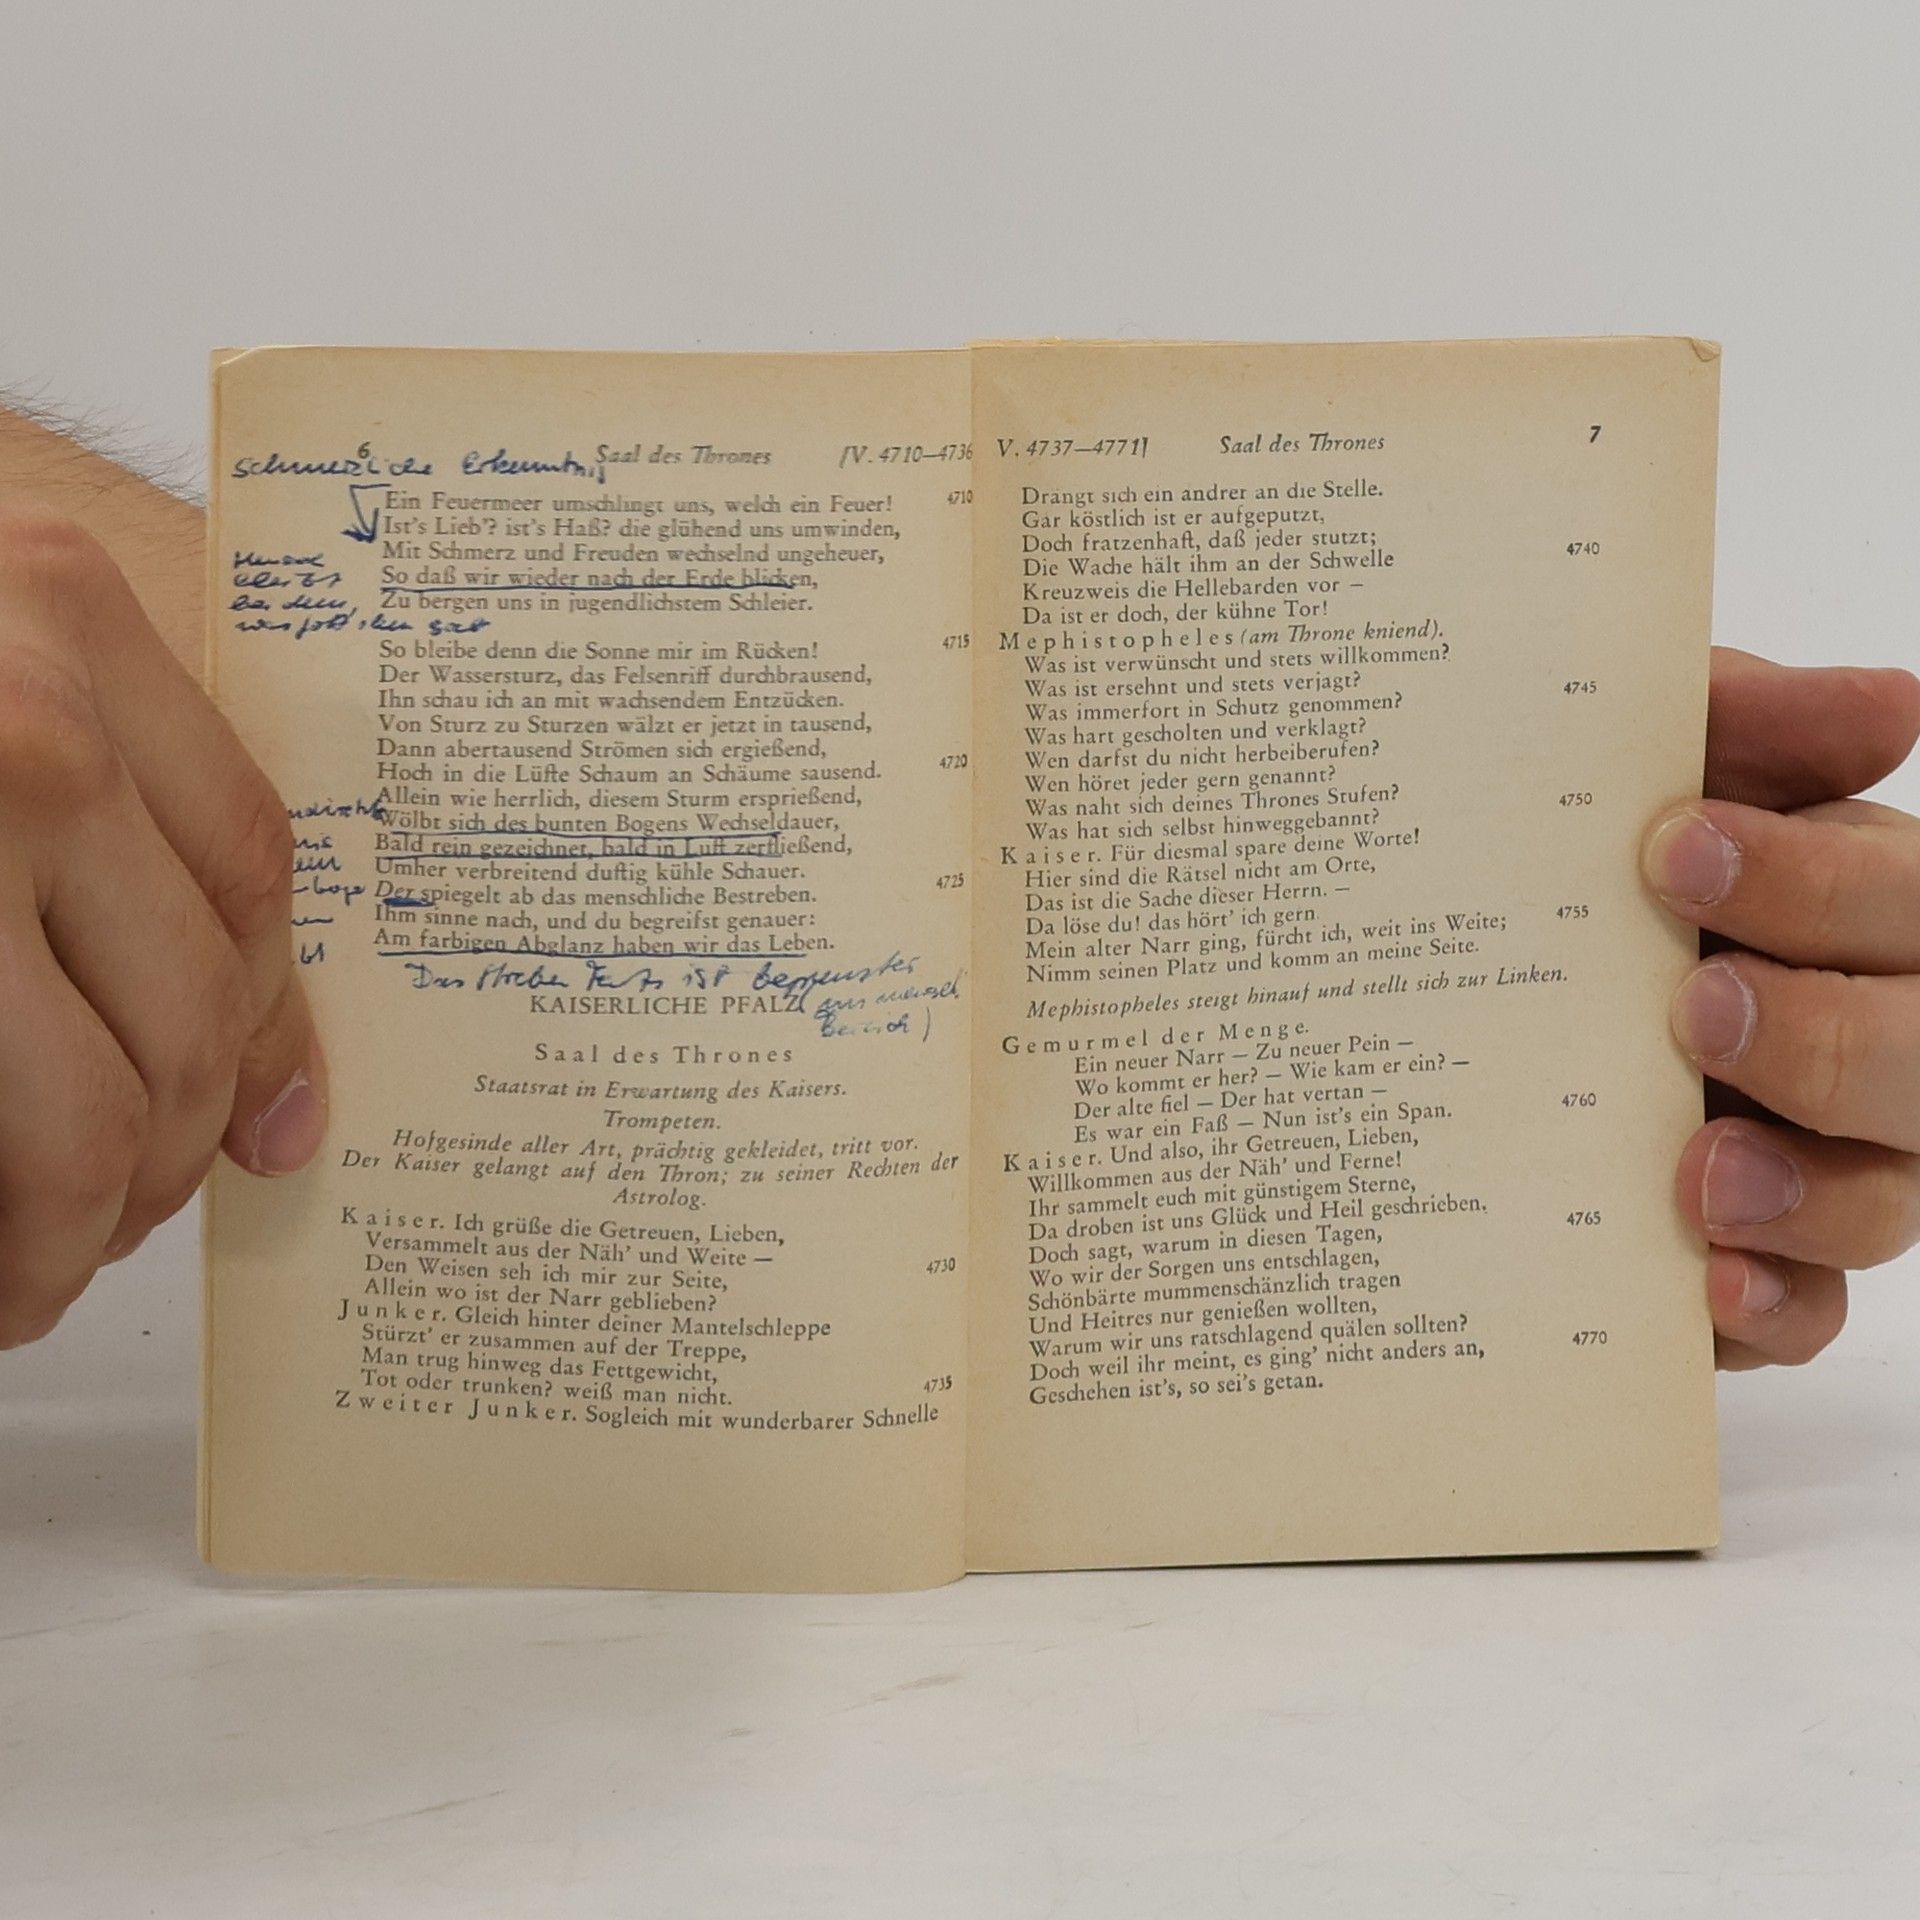 6 Saal des Thrones [V. 4710—4736
Schmerzliche Erkenntnis
Ein Feuermeer umschlingt uns, welch ein Feuer! 4710
Ist's Lieb'? ist's Haß? die glühend uns umwinden,
Mit Schmerz und Freuden wechselnd ungeheuer,
So daß wir wieder nach der Erde blicken,
Zu bergen uns in jugendlichstem Schleier.
Mensch
bleibt
bei dem,
was Gott ihm
So bleibe denn die Sonne mir im Rücken! 4715
Der Wassersturz, das Felsenriff durchbrausend,
Ihn schau ich an mit wachsendem Entzücken.
Von Sturz zu Sturzen wälzt er jetzt in tausend,
Dann abertausend Strömen sich ergießend,
Hoch in die Lüfte Schaum an Schäume sausend. 4720
Allein wie herrlich, diesem Sturm ersprießend,
Wölbt sich des bunten Bogens Wechseldauer,
Bald rein gezeichnet, bald in Luft zerfließend,
Umher verbreitend duftig kühle Schauer.
Der spiegelt ab das menschliche Bestreben. 4725
Ihm sinne nach, und du begreifst genauer:
Am farbigen Abglanz haben wir das Leben.
Das Streben Fausts ist
KAISERLICHE PFALZ
Saal des Thrones
Staatsrat in Erwartung des Kaisers.
Trompeten.
Hofgesinde aller Art, prächtig gekleidet, tritt vor.
Der Kaiser gelangt auf den Thron; zu seiner Rechten der
Astrolog.
Kaiser. Ich grüße die Getreuen, Lieben,
Versammelt aus der Näh' und Weite —
Den Weisen seh ich mir zur Seite, 4730
Allein wo ist der Narr geblieben?
Junker. Gleich hinter deiner Mantelschleppe
Stürzt' er zusammen auf der Treppe,
Man trug hinweg das Fettgewicht,
Tot oder trunken? weiß man nicht. 4735
Zweiter Junker. Sogleich mit wunderbarer Schnelle
V. 4737—4771] Saal des Thrones 7
Drängt sich ein andrer an die Stelle.
Gar köstlich ist er aufgeputzt,
Doch fratzenhaft, daß jeder stutzt;
Die Wache hält ihm an der Schwelle 4740
Kreuzweis die Hellebarden vor —
Da ist er doch, der kühne Tor!
Mephistopheles (am Throne kniend).
Was ist verwünscht und stets willkommen?
Was ist ersehnt und stets verjagt?
Was immerfort in Schutz genommen? 4745
Was hart gescholten und verklagt?
Wen darfst du nicht herbeiberufen?
Wen höret jeder gern genannt?
Was naht sich deines Thrones Stufen?
Was hat sich selbst hinweggebannt? 4750
Kaiser. Für diesmal spare deine Worte!
Hier sind die Rätsel nicht am Orte,
Das ist die Sache dieser Herrn. —
Da löse du! das hört' ich gern.
Mein alter Narr ging, fürcht ich, weit ins Weite; 4755
Nimm seinen Platz und komm an meine Seite.
Mephistopheles steigt hinauf und stellt sich zur Linken.
Gemurmel der Menge.
Ein neuer Narr — Zu neuer Pein —
Wo kommt er her? — Wie kam er ein? —
Der alte fiel — Der hat vertan —
Es war ein Faß — Nun ist's ein Span. 4760
Kaiser. Und also, ihr Getreuen, Lieben,
Willkommen aus der Näh' und Ferne!
Ihr sammelt euch mit günstigem Sterne,
Da droben ist uns Glück und Heil geschrieben.
Doch sagt, warum in diesen Tagen, 4765
Wo wir der Sorgen uns entschlagen,
Schönbärte mummenschänzlich tragen
Und Heitres nur genießen wollten,
Warum wir uns ratschlagend quälen sollten?
Doch weil ihr meint, es ging' nicht anders an, 4770
Geschehen ist's, so sei's getan.